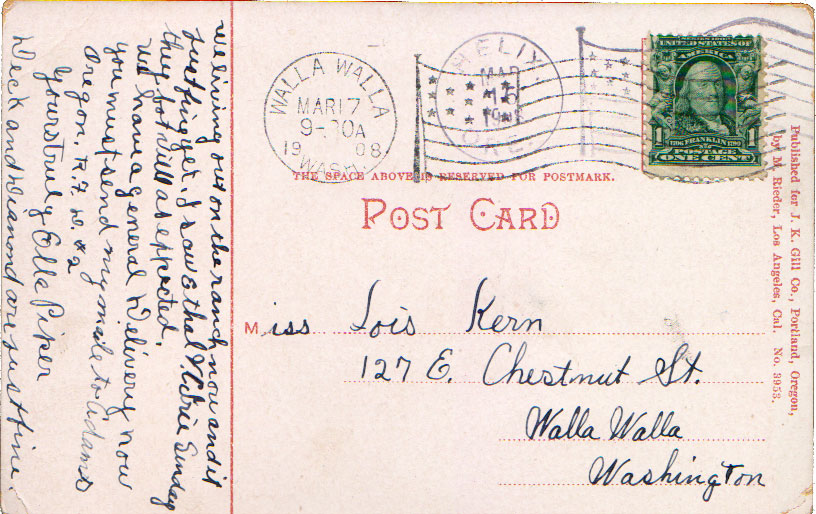 we living out on the ranch now and it
just fine yet. I saw Ethal & Sunday
they but Will as expected.
we have a general Delivery now
you must send my mail to Adams
Oregon. R.F.D. #2
yours truly Ella Piper
Deck and Diamond are just fine.
WALLA WALLA
MAR 17
9-30A
1908
WASH.
HELIX,
MAR
ORE.
UNITED STATES OF
AMERICA
1
1706 FRANKLIN 1790
POSTAGE
ONE CENT
THE SPACE ABOVE IS RESERVED FOR POSTMARK.
POST CARD
Miss Lois Kern
127 E. Chestnut St.
Walla Walla
Washington
Published for J. K. Gill Co., Portland, Oregon,
by M. Rieder, Los Angeles, Cal. No. 3953.